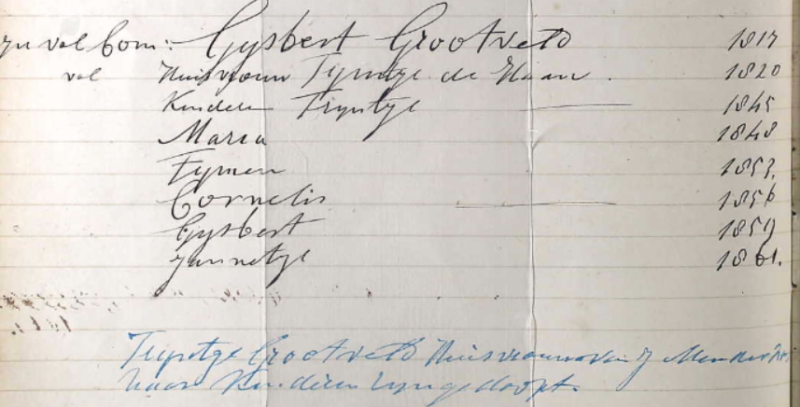 zyn vol Com: Gysbert Grootveld 1817
vol Huisvrouw Tymtje de Haan. 1820
Kinderen Tryntje 1845
Maria 1848
Tymen 1853.
Cornelis 1856
Gysbert 1859
Jannetje 1861.
Tryntje Grootveld Huisvrouw van J
haar Kinderen zyn gedoopt.